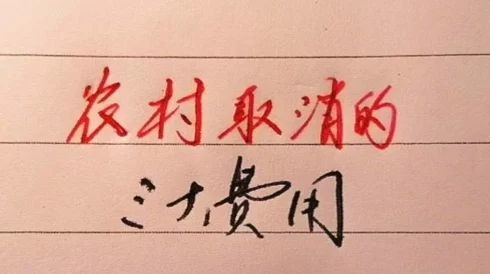 农村取消的
三大费用